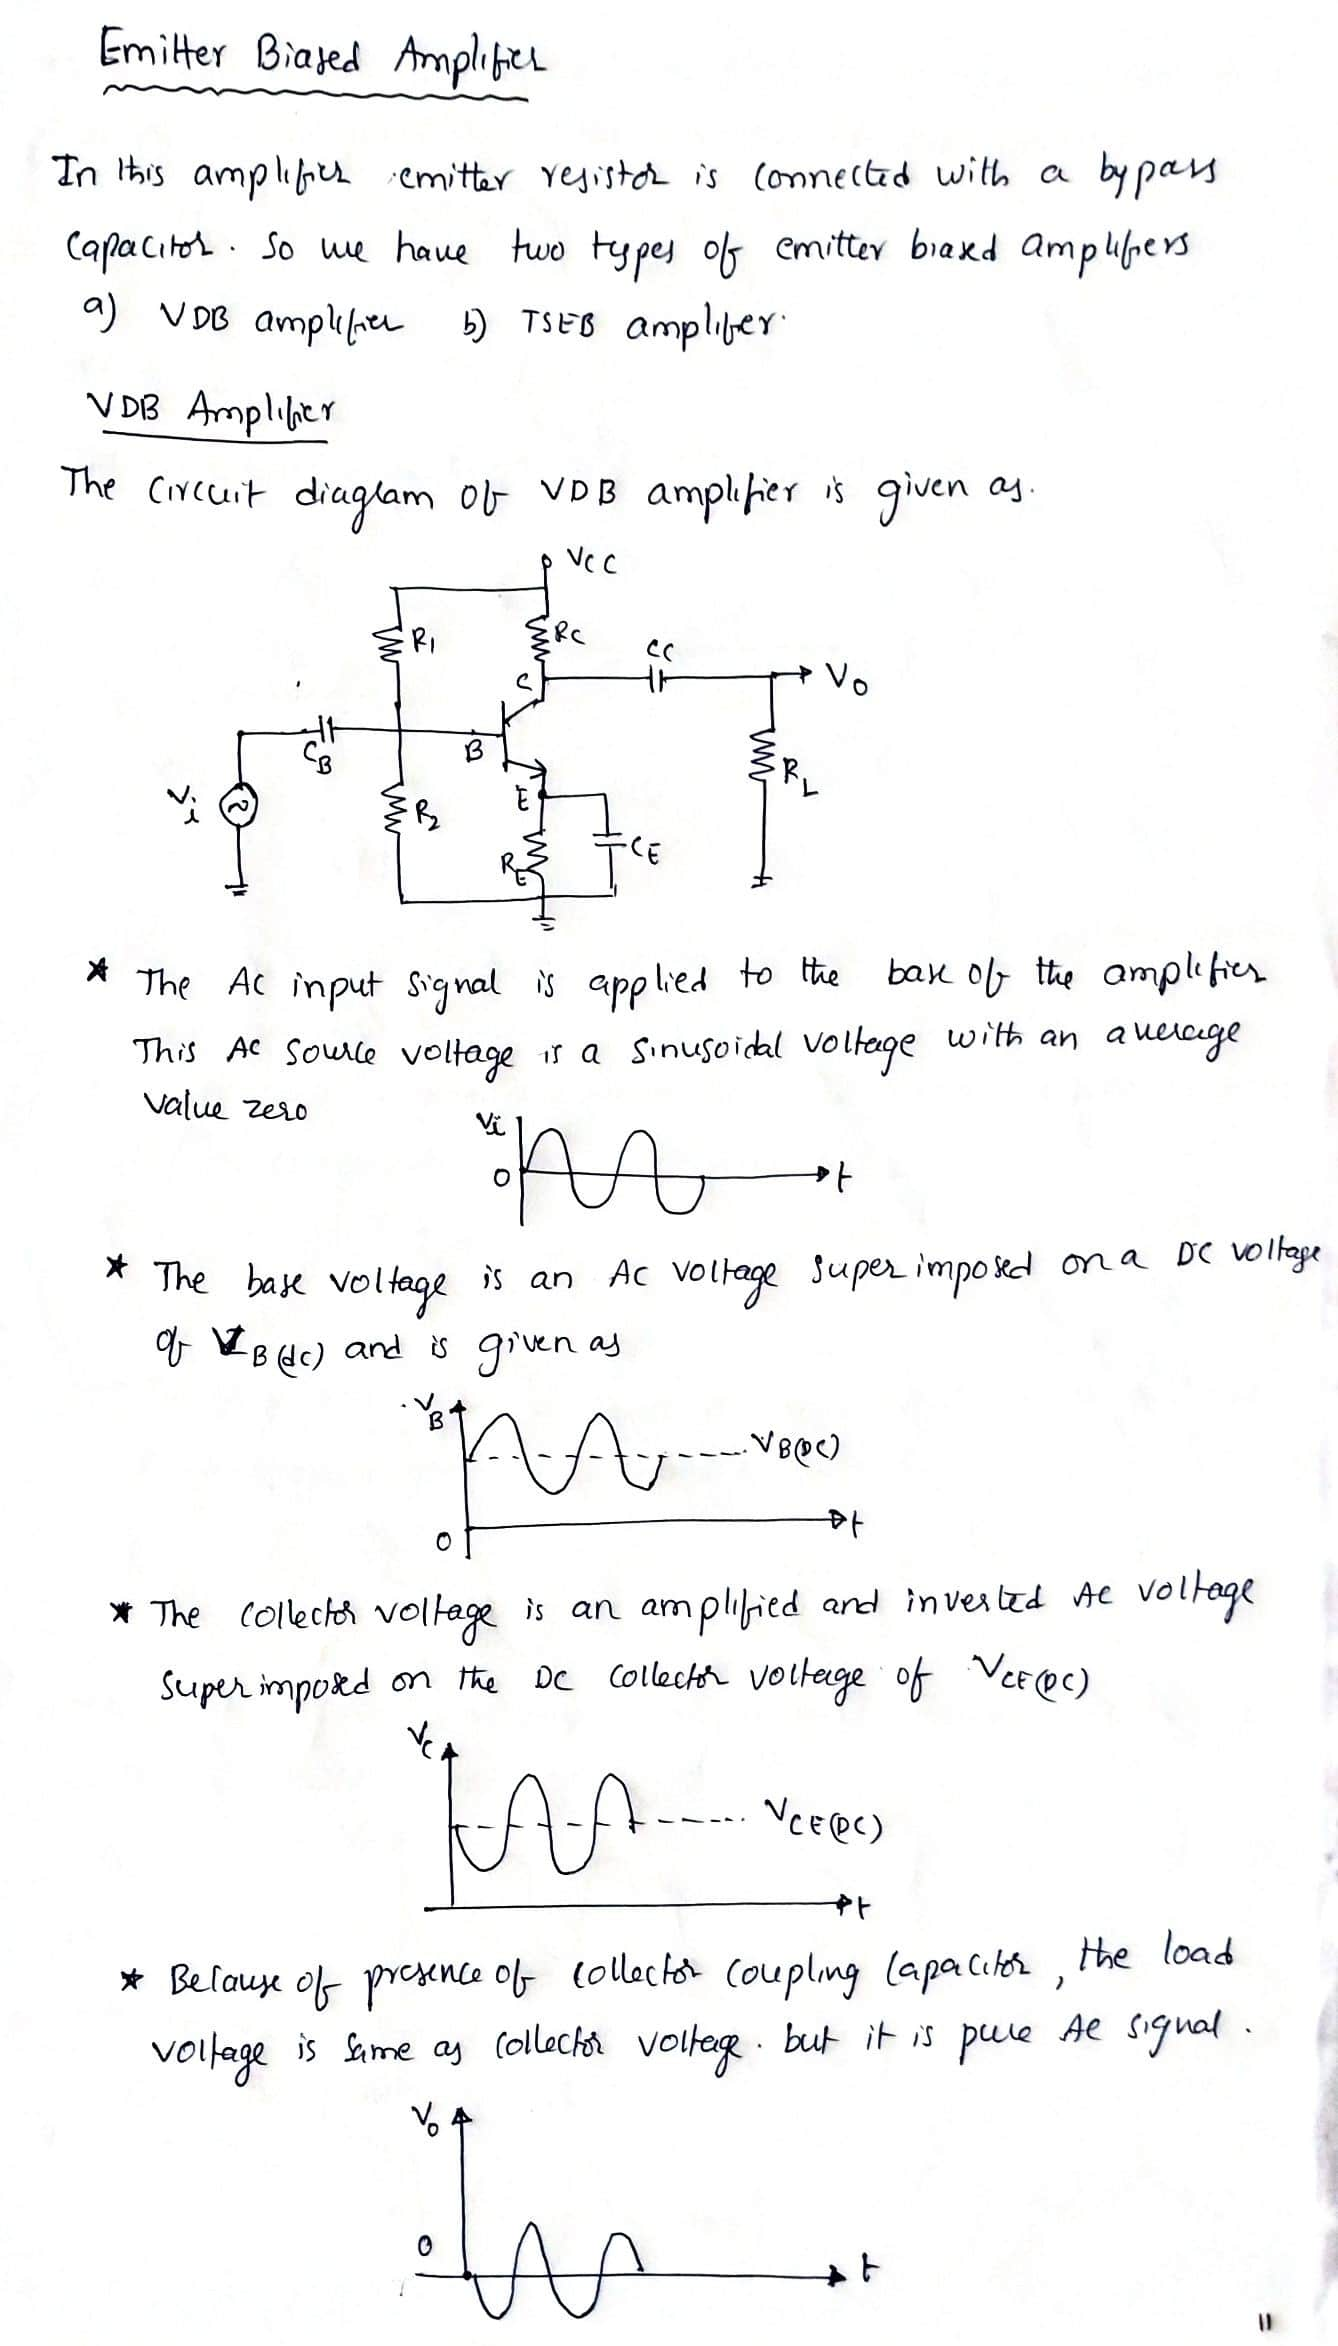 Emitter Biased Amplifier
In this amplifier emitter resistor is connected with a bypass
capacitor. So we have two types of emitter biased amplifiers
a) VDB amplifier b) TSEB amplifier.
VDB Amplifier
The circuit diagram of VDB amplifier is given as.
VCC
R1 RC
CC
C Vo
CB B
RL
Vi E
R2
RE CE
* The AC input signal is applied to the base of the amplifier
This AC source voltage is a sinusoidal voltage with an average
value zero
Vi
0 t
* The base voltage is an AC voltage superimposed on a DC voltage
of VB(dc) and is given as
VB
VB(DC)
0 t
* The collector voltage is an amplified and inverted AC voltage
superimposed on the DC collector voltage of VCE(DC)
VC
VCE(DC)
t
* Because of presence of collector coupling capacitor, the load
voltage is same as collector voltage. but it is pure AC signal.
Vo
0 t
11